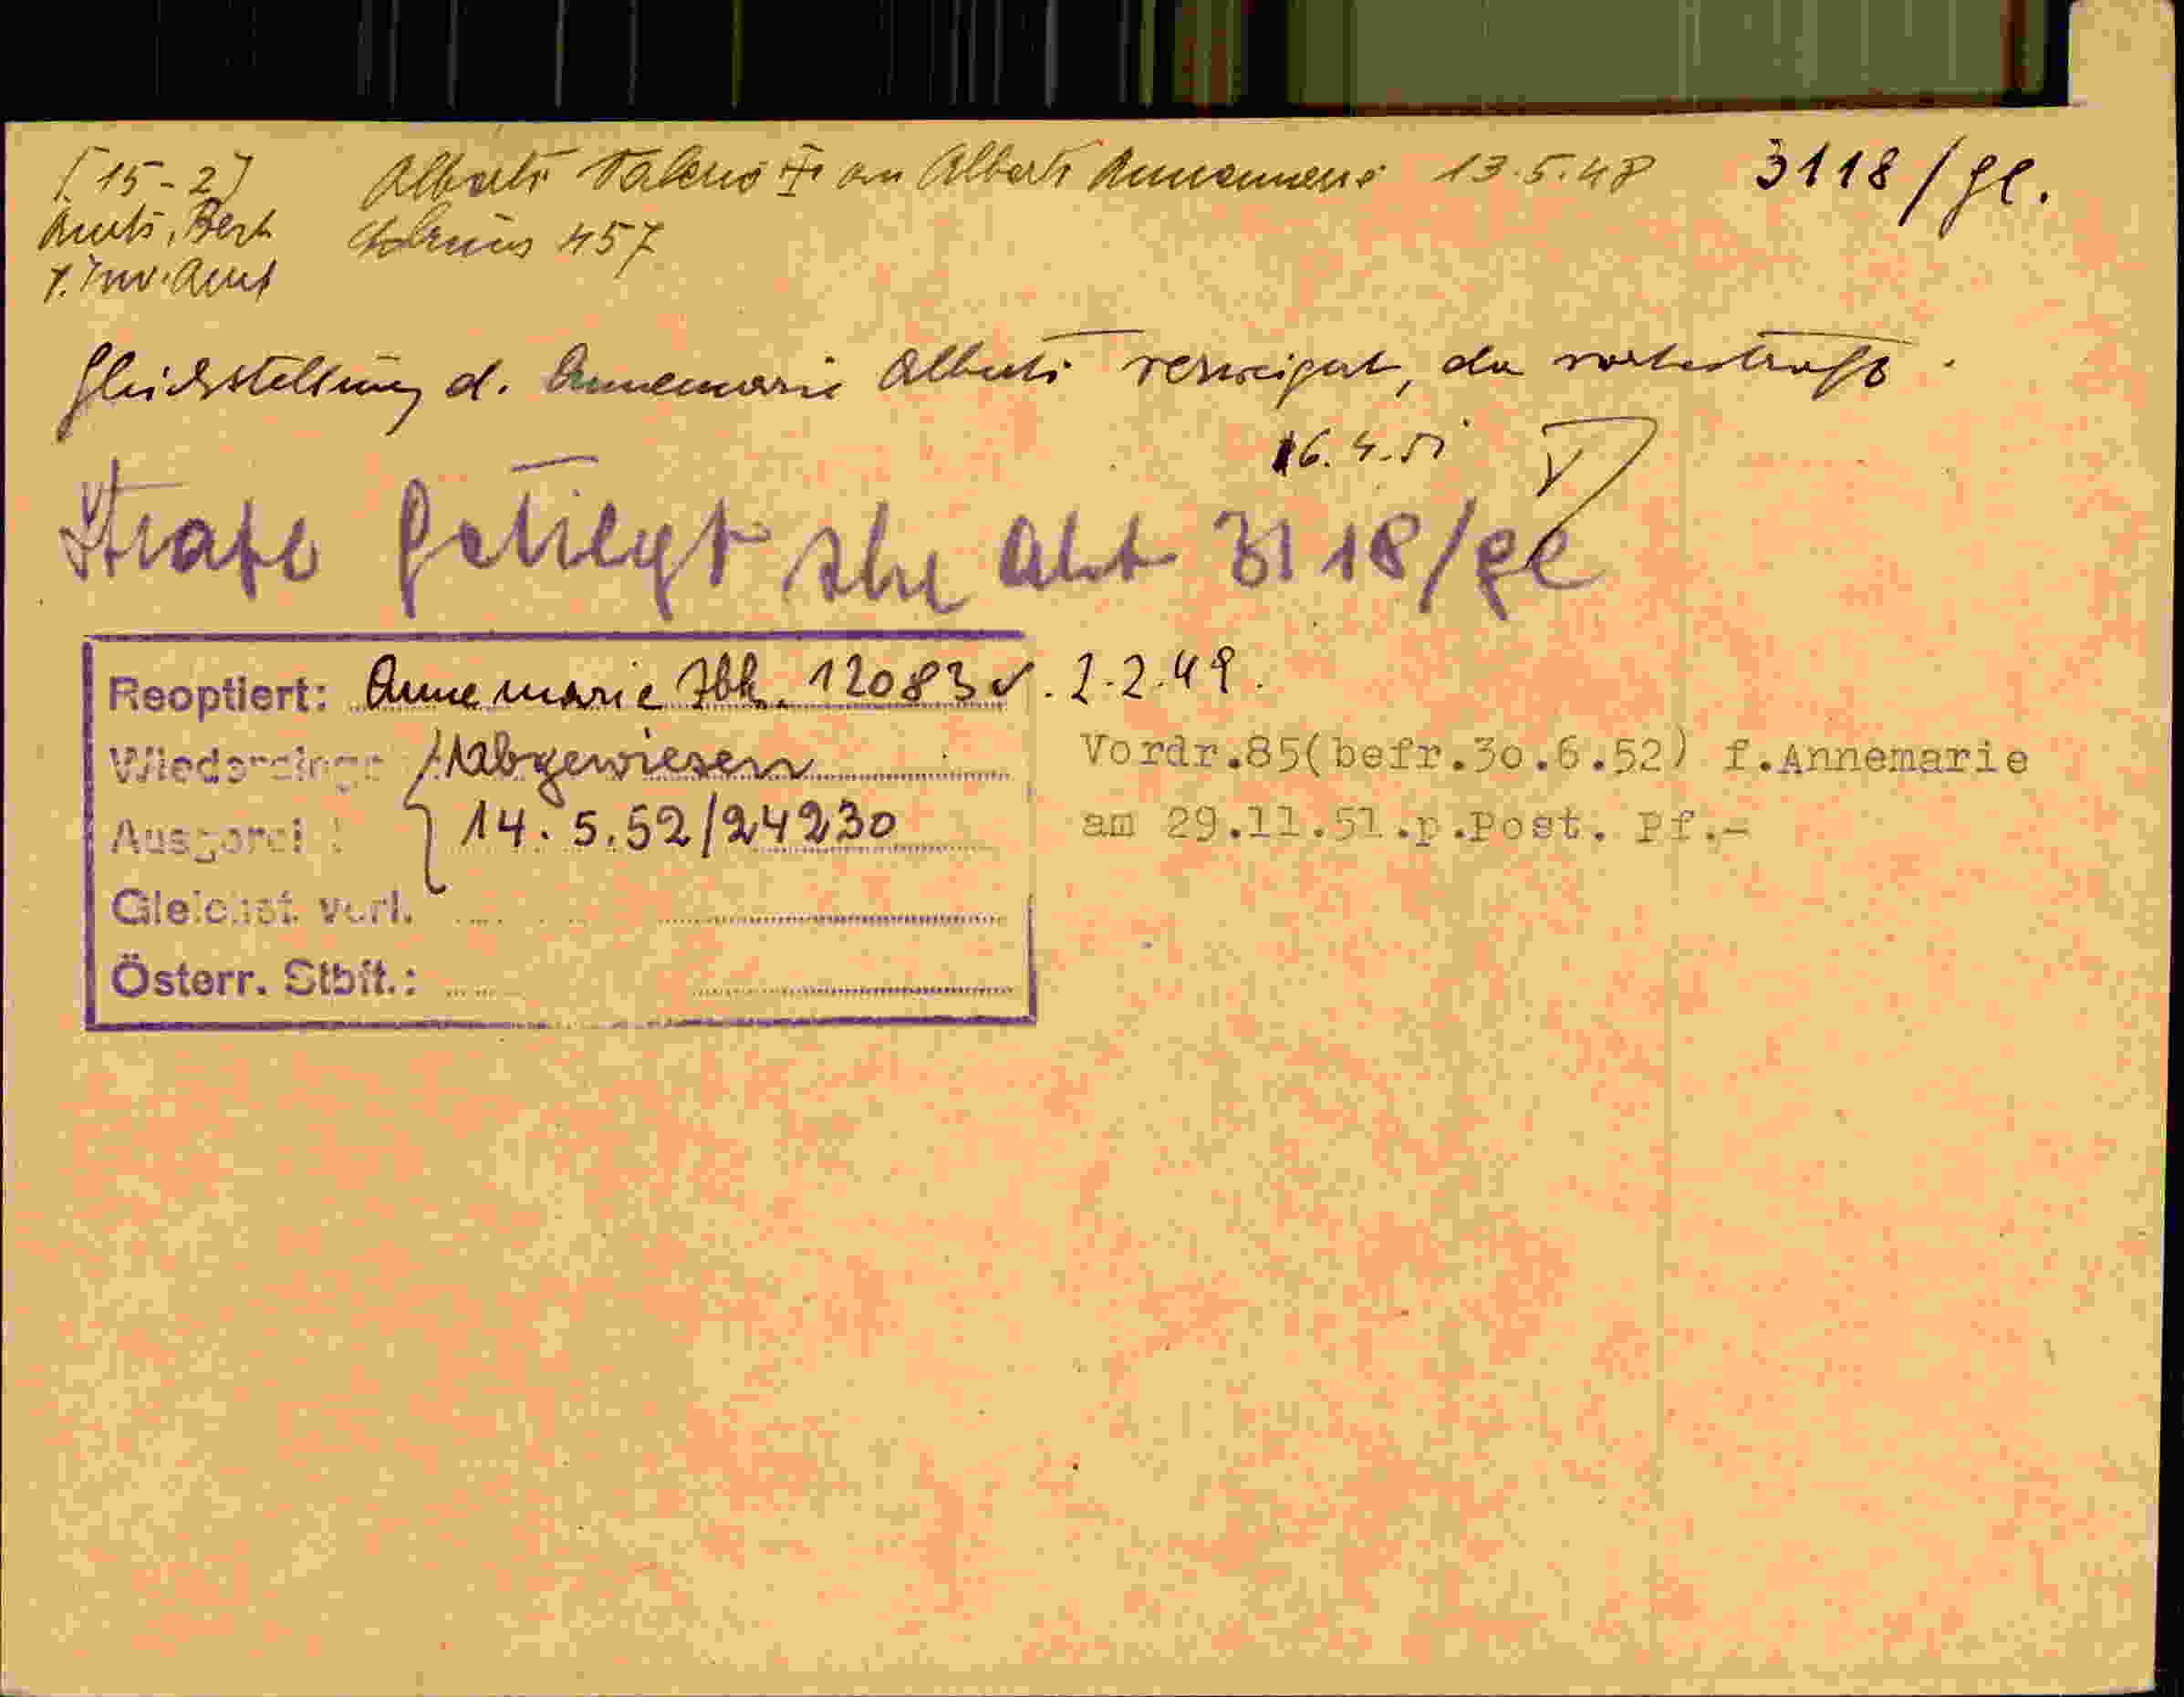 [15-2] Alberti Valerio I. an Alberti Annemarie 13.5.48 3118/gl.
Amts. Best 457
Gleichstellung d. Annemarie Alberti verweigert, da vorbestraft.
16.4.51
Strafe getilgt Akt 3118/gl
Reoptiert: Annemarie Ibk. 12083 v. 2.2.49.
Abgewiesen
Vordr.85(befr.30.6.52) f.Annemarie
14.5.52/24230
am 29.11.51.p.Post. Pf.-
Gleichst. vorl.
Österr. Stbft.: